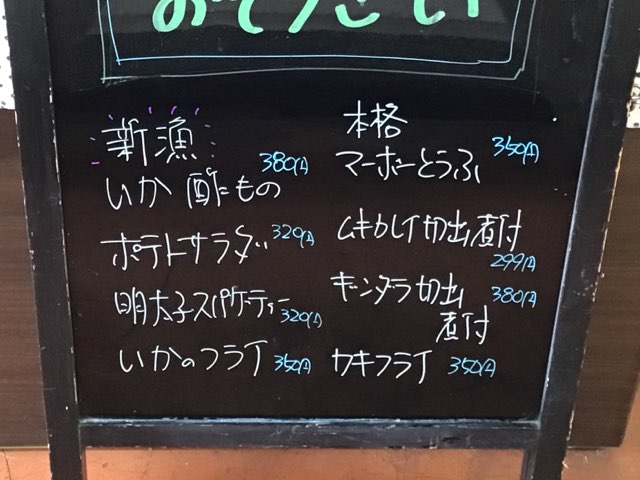 新漁
いか 酢もの 380円
ポテトサラダ 320円
明太子スパゲティー 320円
いかのフライ 350円
本格
マーボーとうふ 350円
ムキカレイ切出煮付
299円
ギンダラ切出 380円
煮付
カキフライ 350円